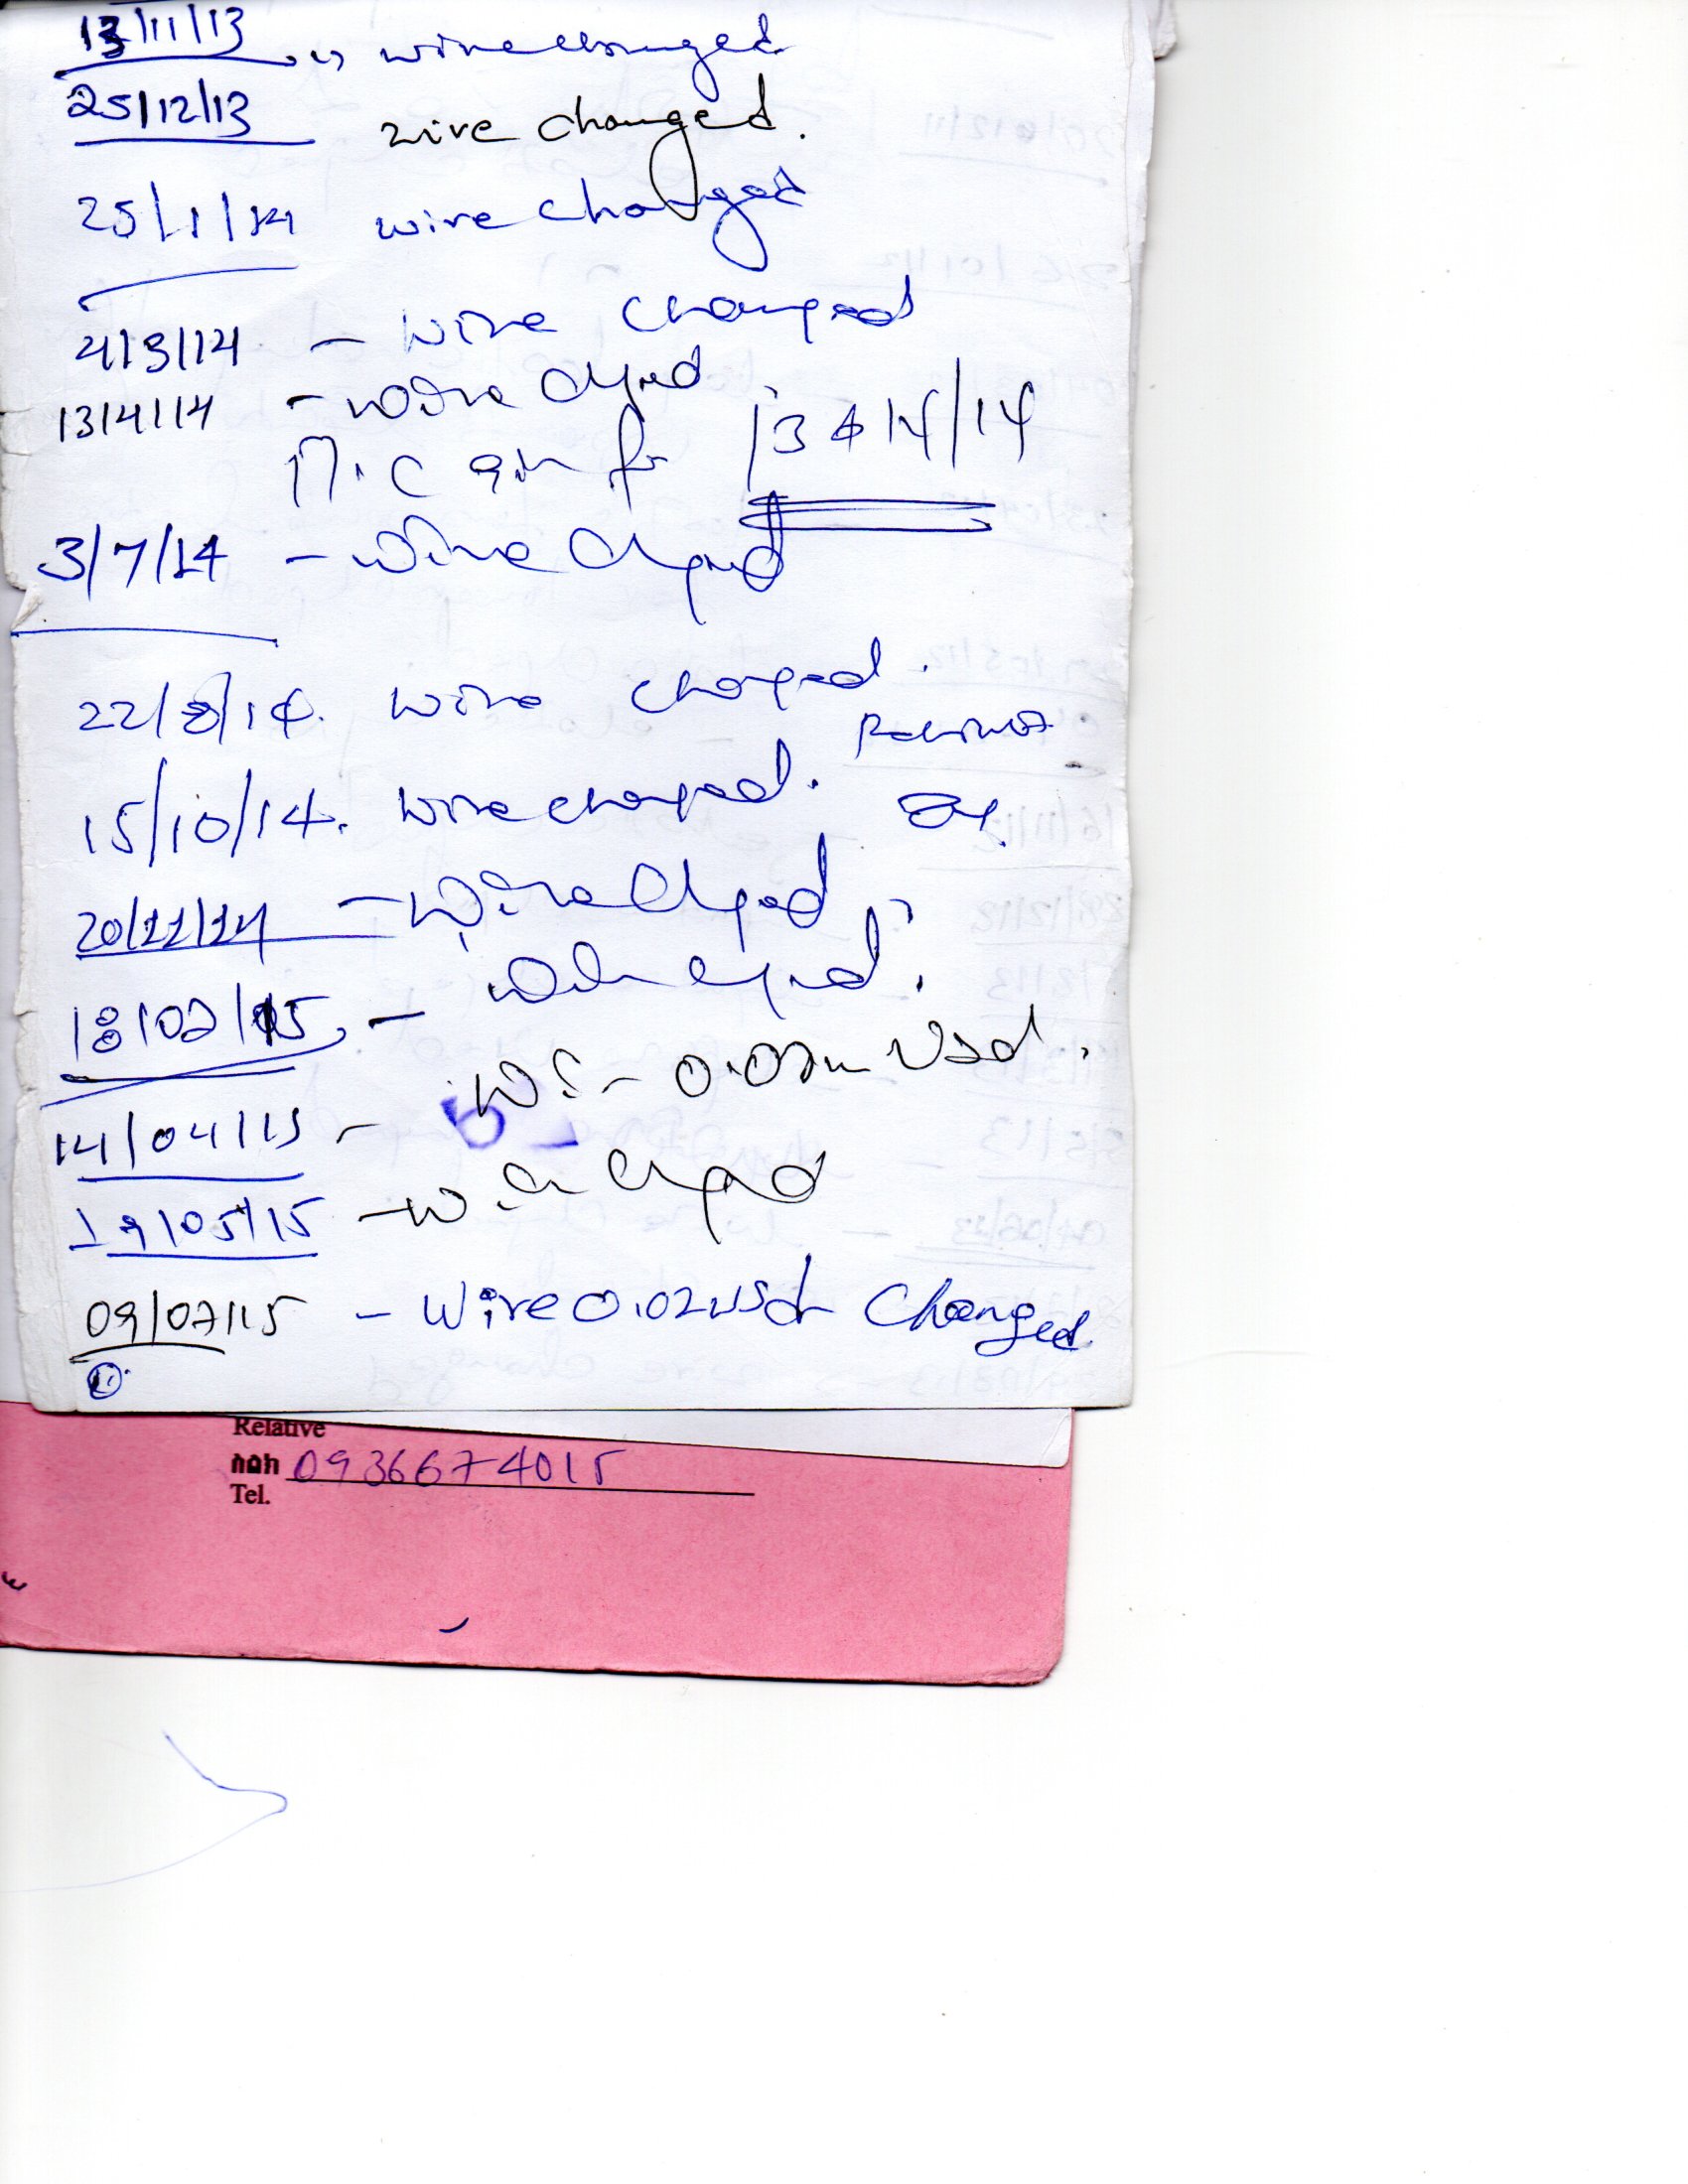 13/11/13 wire changed
25/12/13 wire changed.
25/1/14 wire changed
4/3/14 - wire changed
13/4/14 - wire chged
M.C for 13 14/14
3/7/14 - wire chged
22/8/14. wire changed.
15/10/14. wire changed.
20/11/14 - wire chged
18/02/15 -
14/04/15 - used.
19/05/15 - chgd
09/07/15 - Wire 0.02 used Changed
Relative
ስልክ 0936674015
Tel.